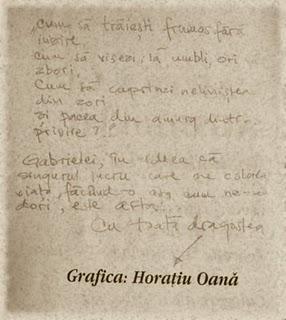 „cum să trăiești frumos fără
iubire,
cum să visezi, să umbli, ori
zbori,
Cum să cuprinzi neliniștea
din zori
și pacea din amurg dintr-o
privire?"
Gabrielei, în ideea că
singurul lucru care ne colorea
viața, făcând-o așa cum ne-o
dori, este
Cu toată dragostea
Grafica: Horațiu Oană